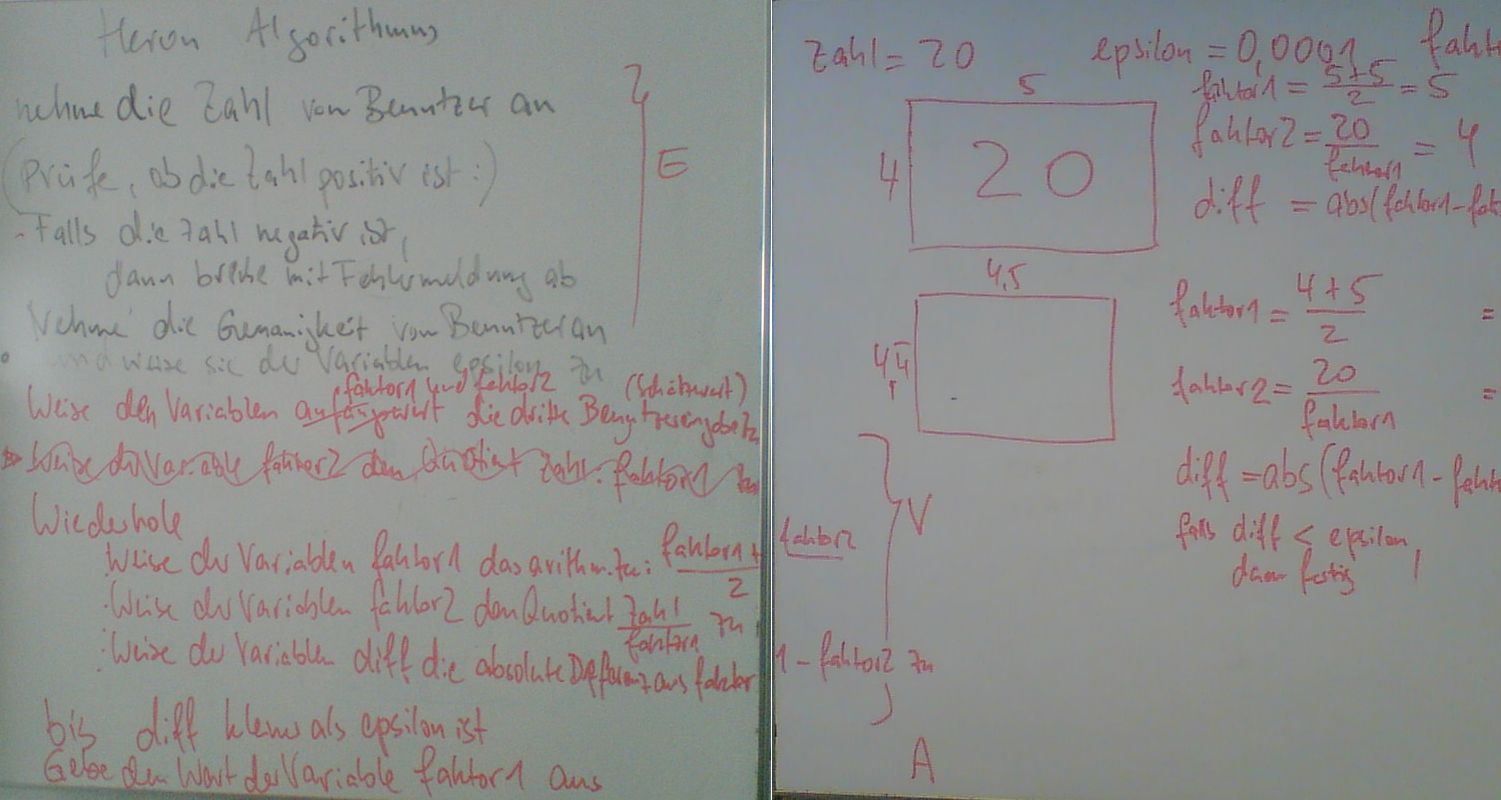 Heron Algorithmus
nehme die Zahl vom Benutzer an
(Prüfe, ob die Zahl positiv ist:)
- Falls die Zahl negativ ist,
dann breche mit Fehlermeldung ab
Nehme die Genauigkeit vom Benutzer an
und weise sie der Variablen epsilon zu
faktor1 und faktor2 (Schätzwert)
Weise den Variablen anfangswert die dritte Benutzereingabe zu
Weise der Variable faktor2 den Quotient Zahl : faktor1 zu
Wiederhole
Weise der Variablen faktor1 das arithm. zu: faktor1 + faktor2
2
Weise der Variablen faktor2 den Quotient Zahl zu
faktor1
Weise der Variablen diff die absolute Differenz aus faktor1 - faktor2 zu
bis diff kleiner als epsilon ist
Gebe den Wert der Variable faktor1 aus
E
Zahl = 20 epsilon = 0,0001 fakt
5
faktor1 = 5+5 = 5
2
4 20
faktor2 = 20 = 4
faktor1
diff = abs(faktor1 - fak
4,5
4,4
faktor1 = 4+5 =
2
faktor2 = 20 =
faktor1
diff = abs(faktor1 - fakt
falls diff < epsilon,
dann fertig !
V
A